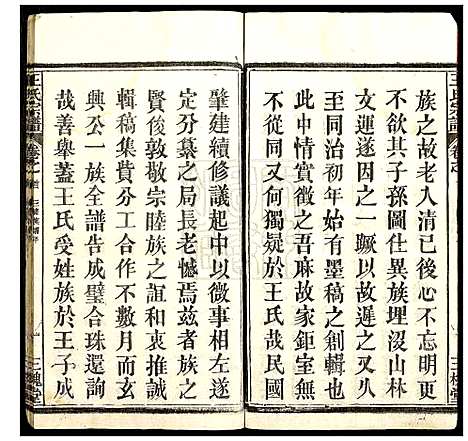 王氏宗譜
族之故老入清已後心不忘明更
不欲其子孫圖仕異族埋沒山林
文獻以故遲之一瞬以迄
至同治初年始有墨稿之創輯也
此中情實徵之吾麻故家鉅室無
不從同又何獨疑於王氏哉民國
肇建續修議起中以微事相左遂
定分纂之局長老憾焉茲者族之
賢俊敦敬宗睦族之誼和衷共
輯稿集貲分工合作不數月而與
興公一族全譜告成璧合珠還詢
哉善舉蓋王氏受姓族於王子成
王氏宗譜
三槐堂